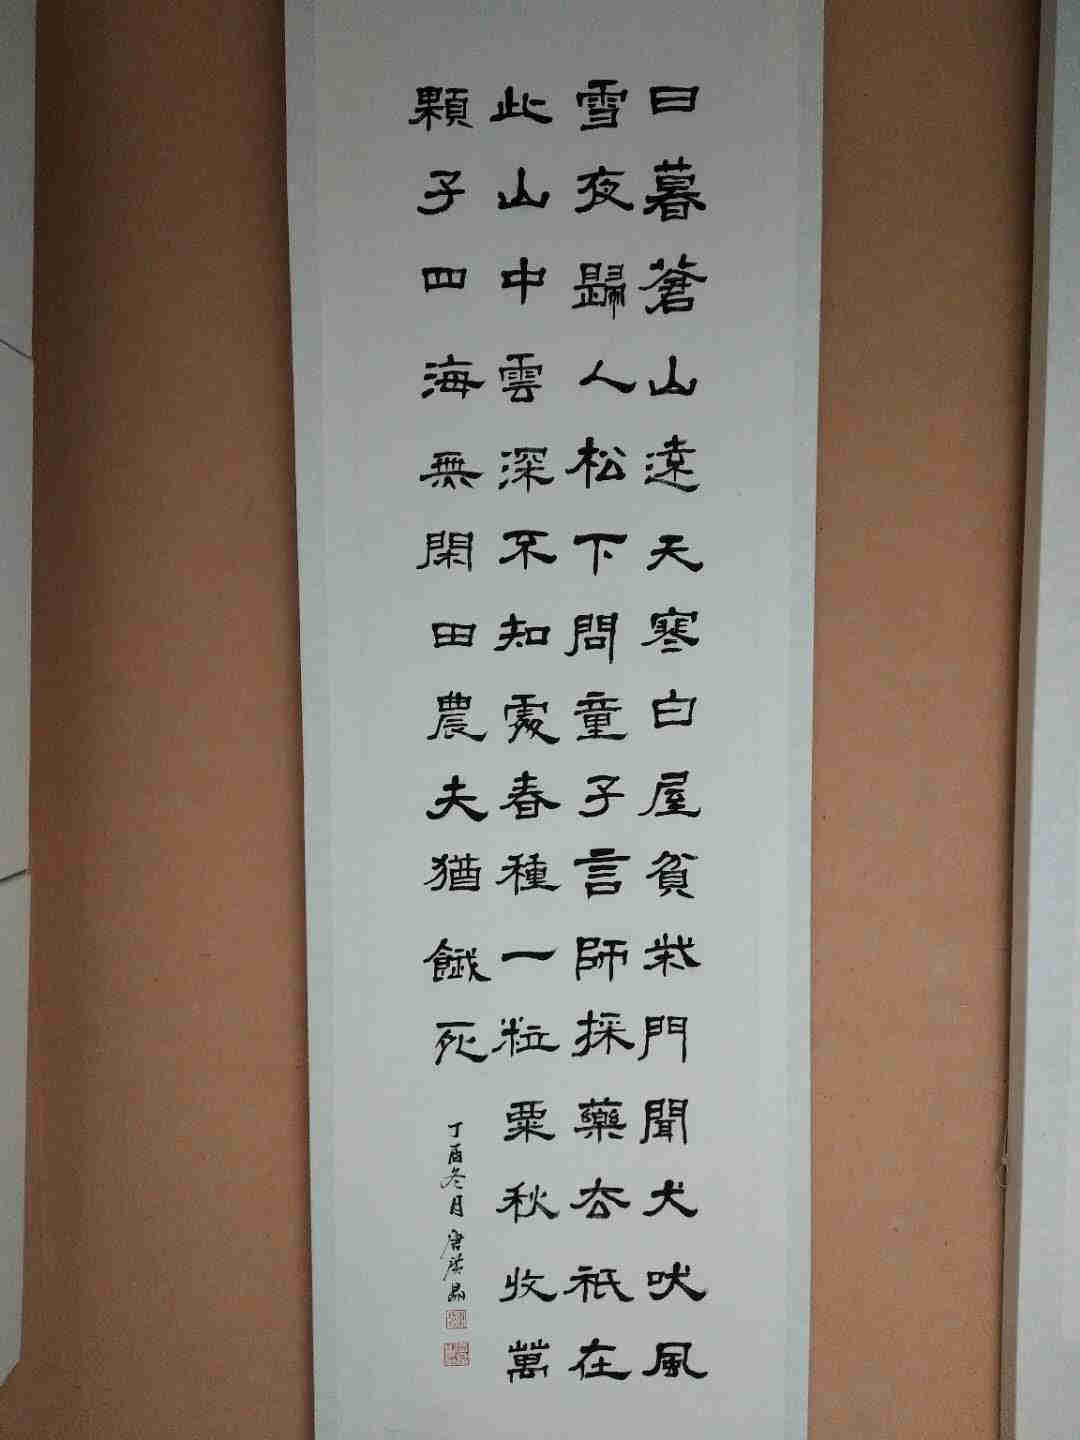 日暮蒼山遠天寒白屋貧柴門聞犬吠風
雪夜歸人松下問童子言師採藥去祇在
此山中雲深不知處春種一粒粟秋收萬
顆子四海無閑田農夫猶餓死
丁酉冬月唐